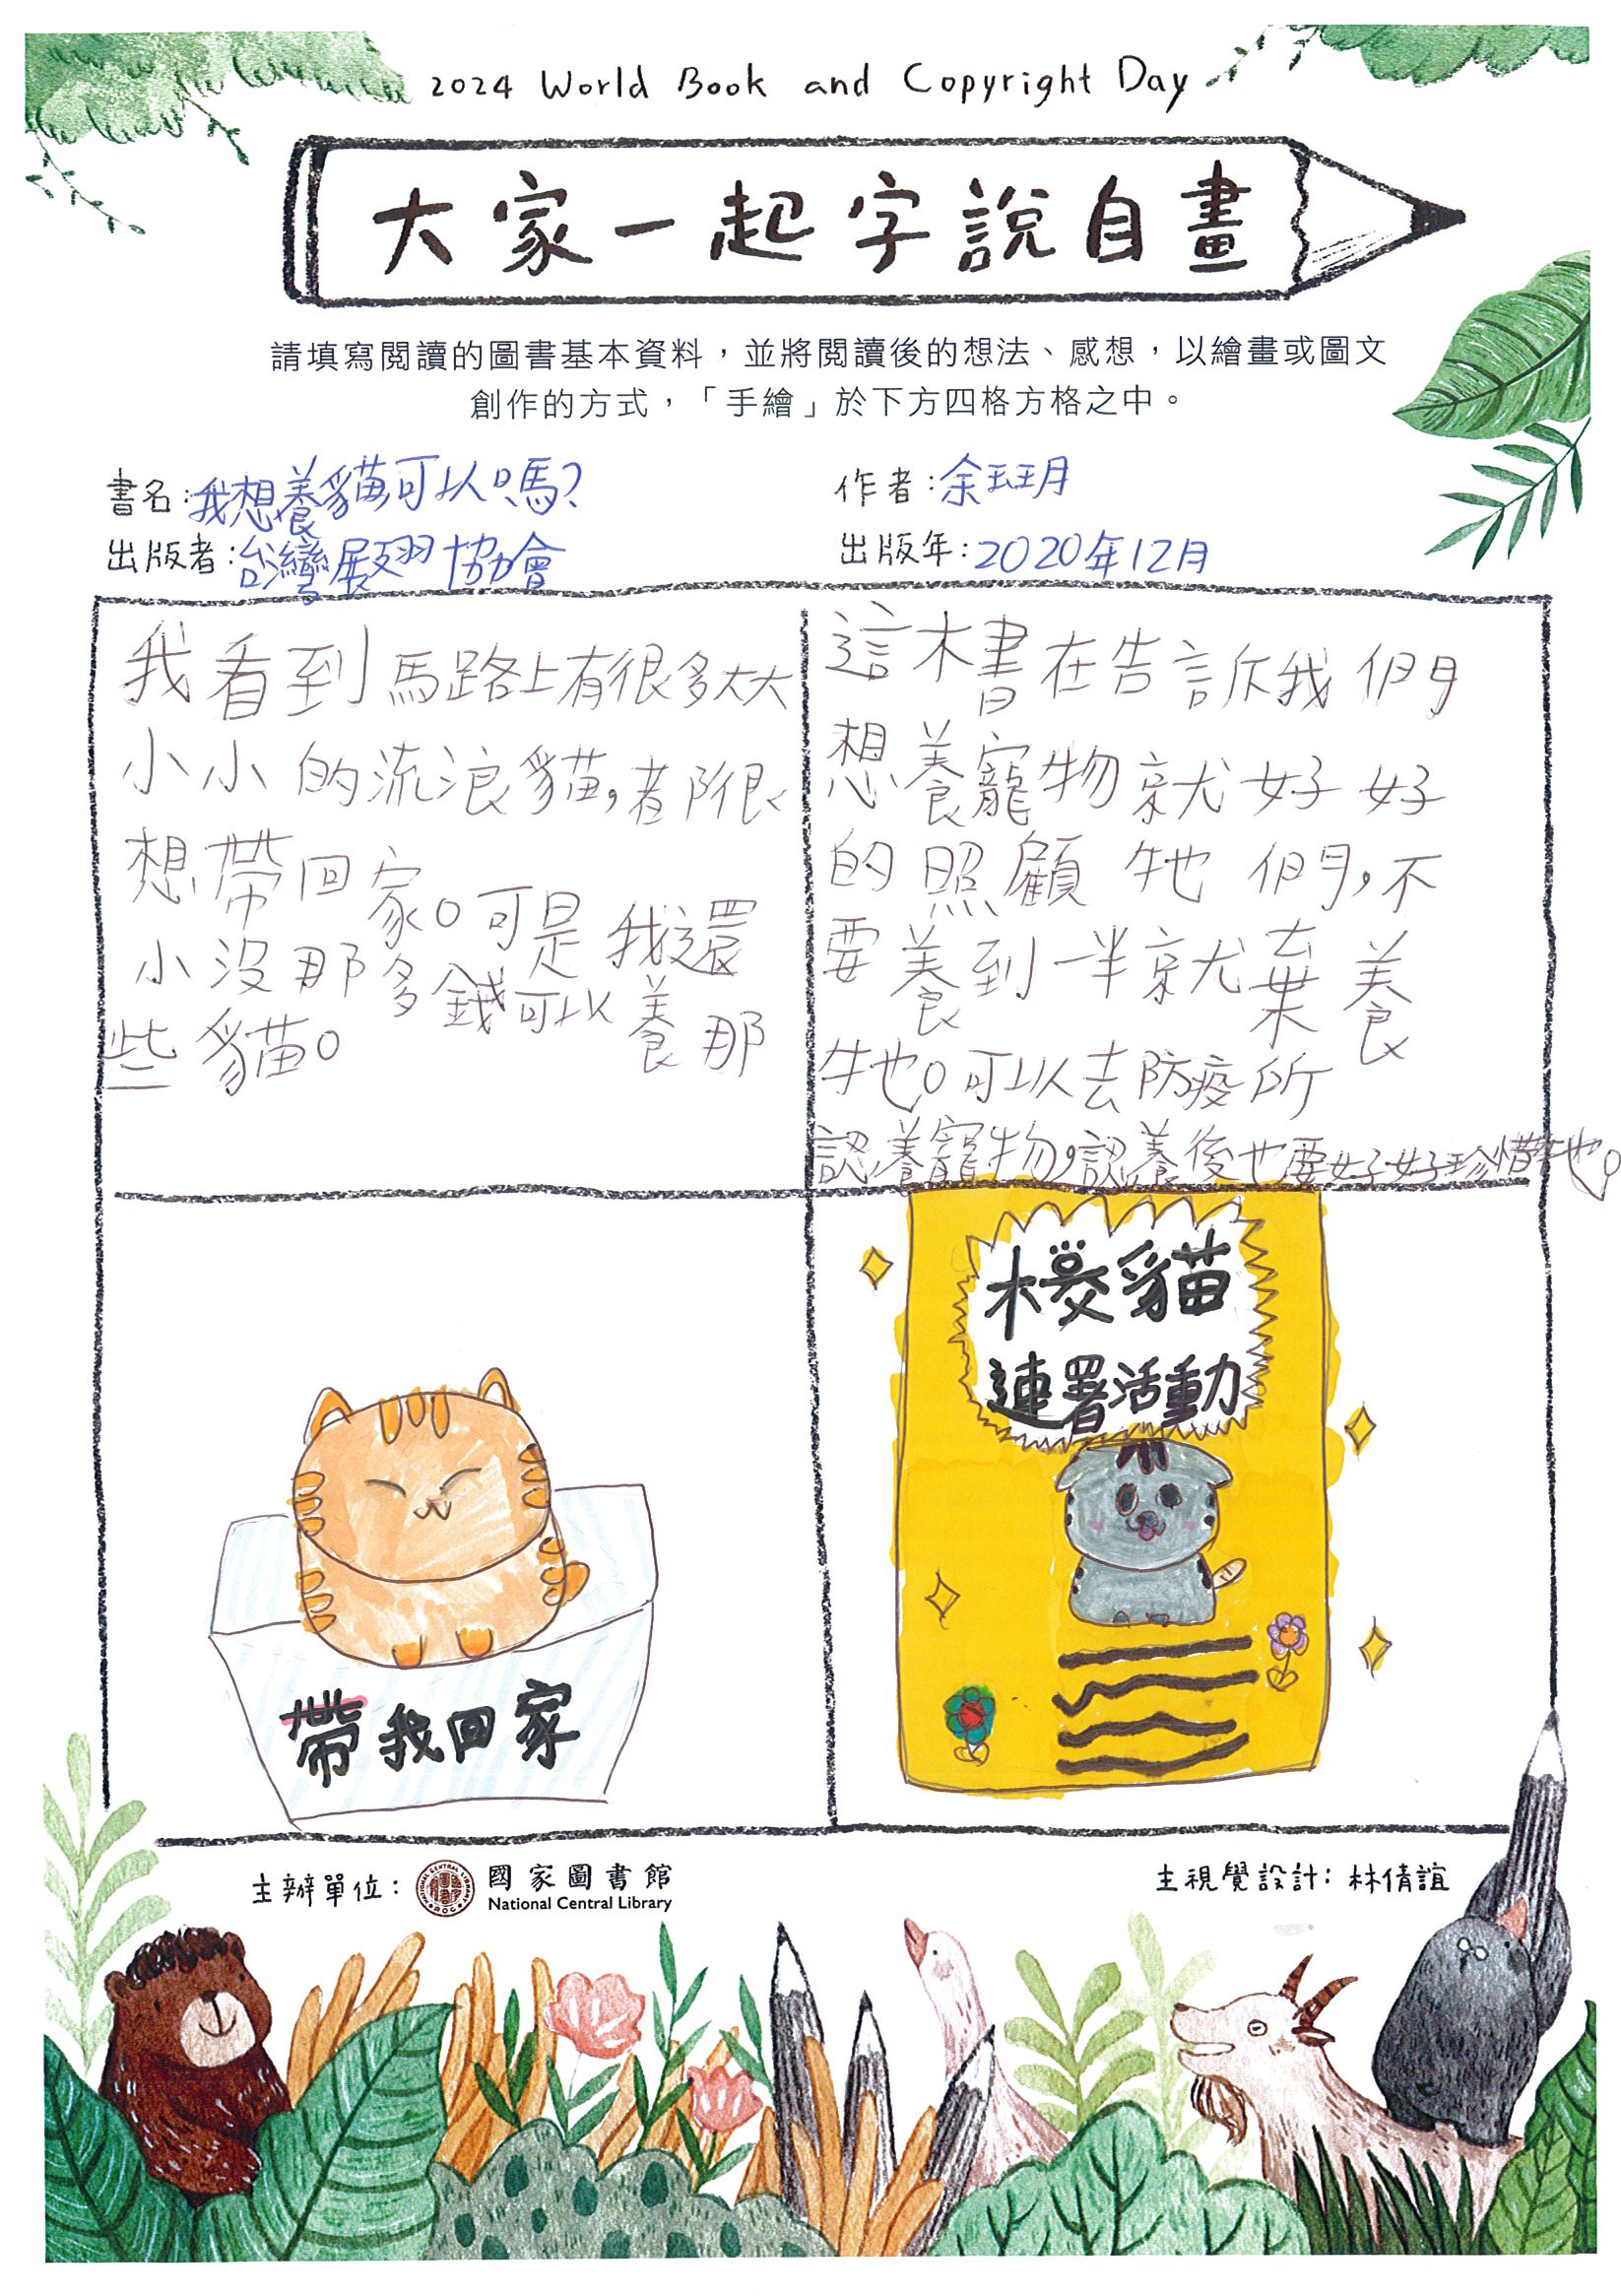 2024 World Book and Copyright Day
大家一起字說自畫
請填寫閱讀的圖書基本資料，並將閱讀後的想法、感想，以繪畫或圖文
創作的方式，「手繪」於下方四格方格之中。
書名：我想養貓可以嗎？
作者：余玨玥
出版者：台灣展翅協會
出版年：2020年12月
我看到馬路上有很多大大
小小的流浪貓，都很
想帶回家。可是我還
小沒那多錢可以養那
些貓。
這本書在告訴我們
想養寵物就好好
的照顧牠們，不
要養到一半就棄養
牠。可以去防疫所
認養寵物，認養後也要好好珍惜牠。
帶我回家
貓
連署活動
主辦單位：
國家圖書館
National Central Library
主視覺設計：林倩誼